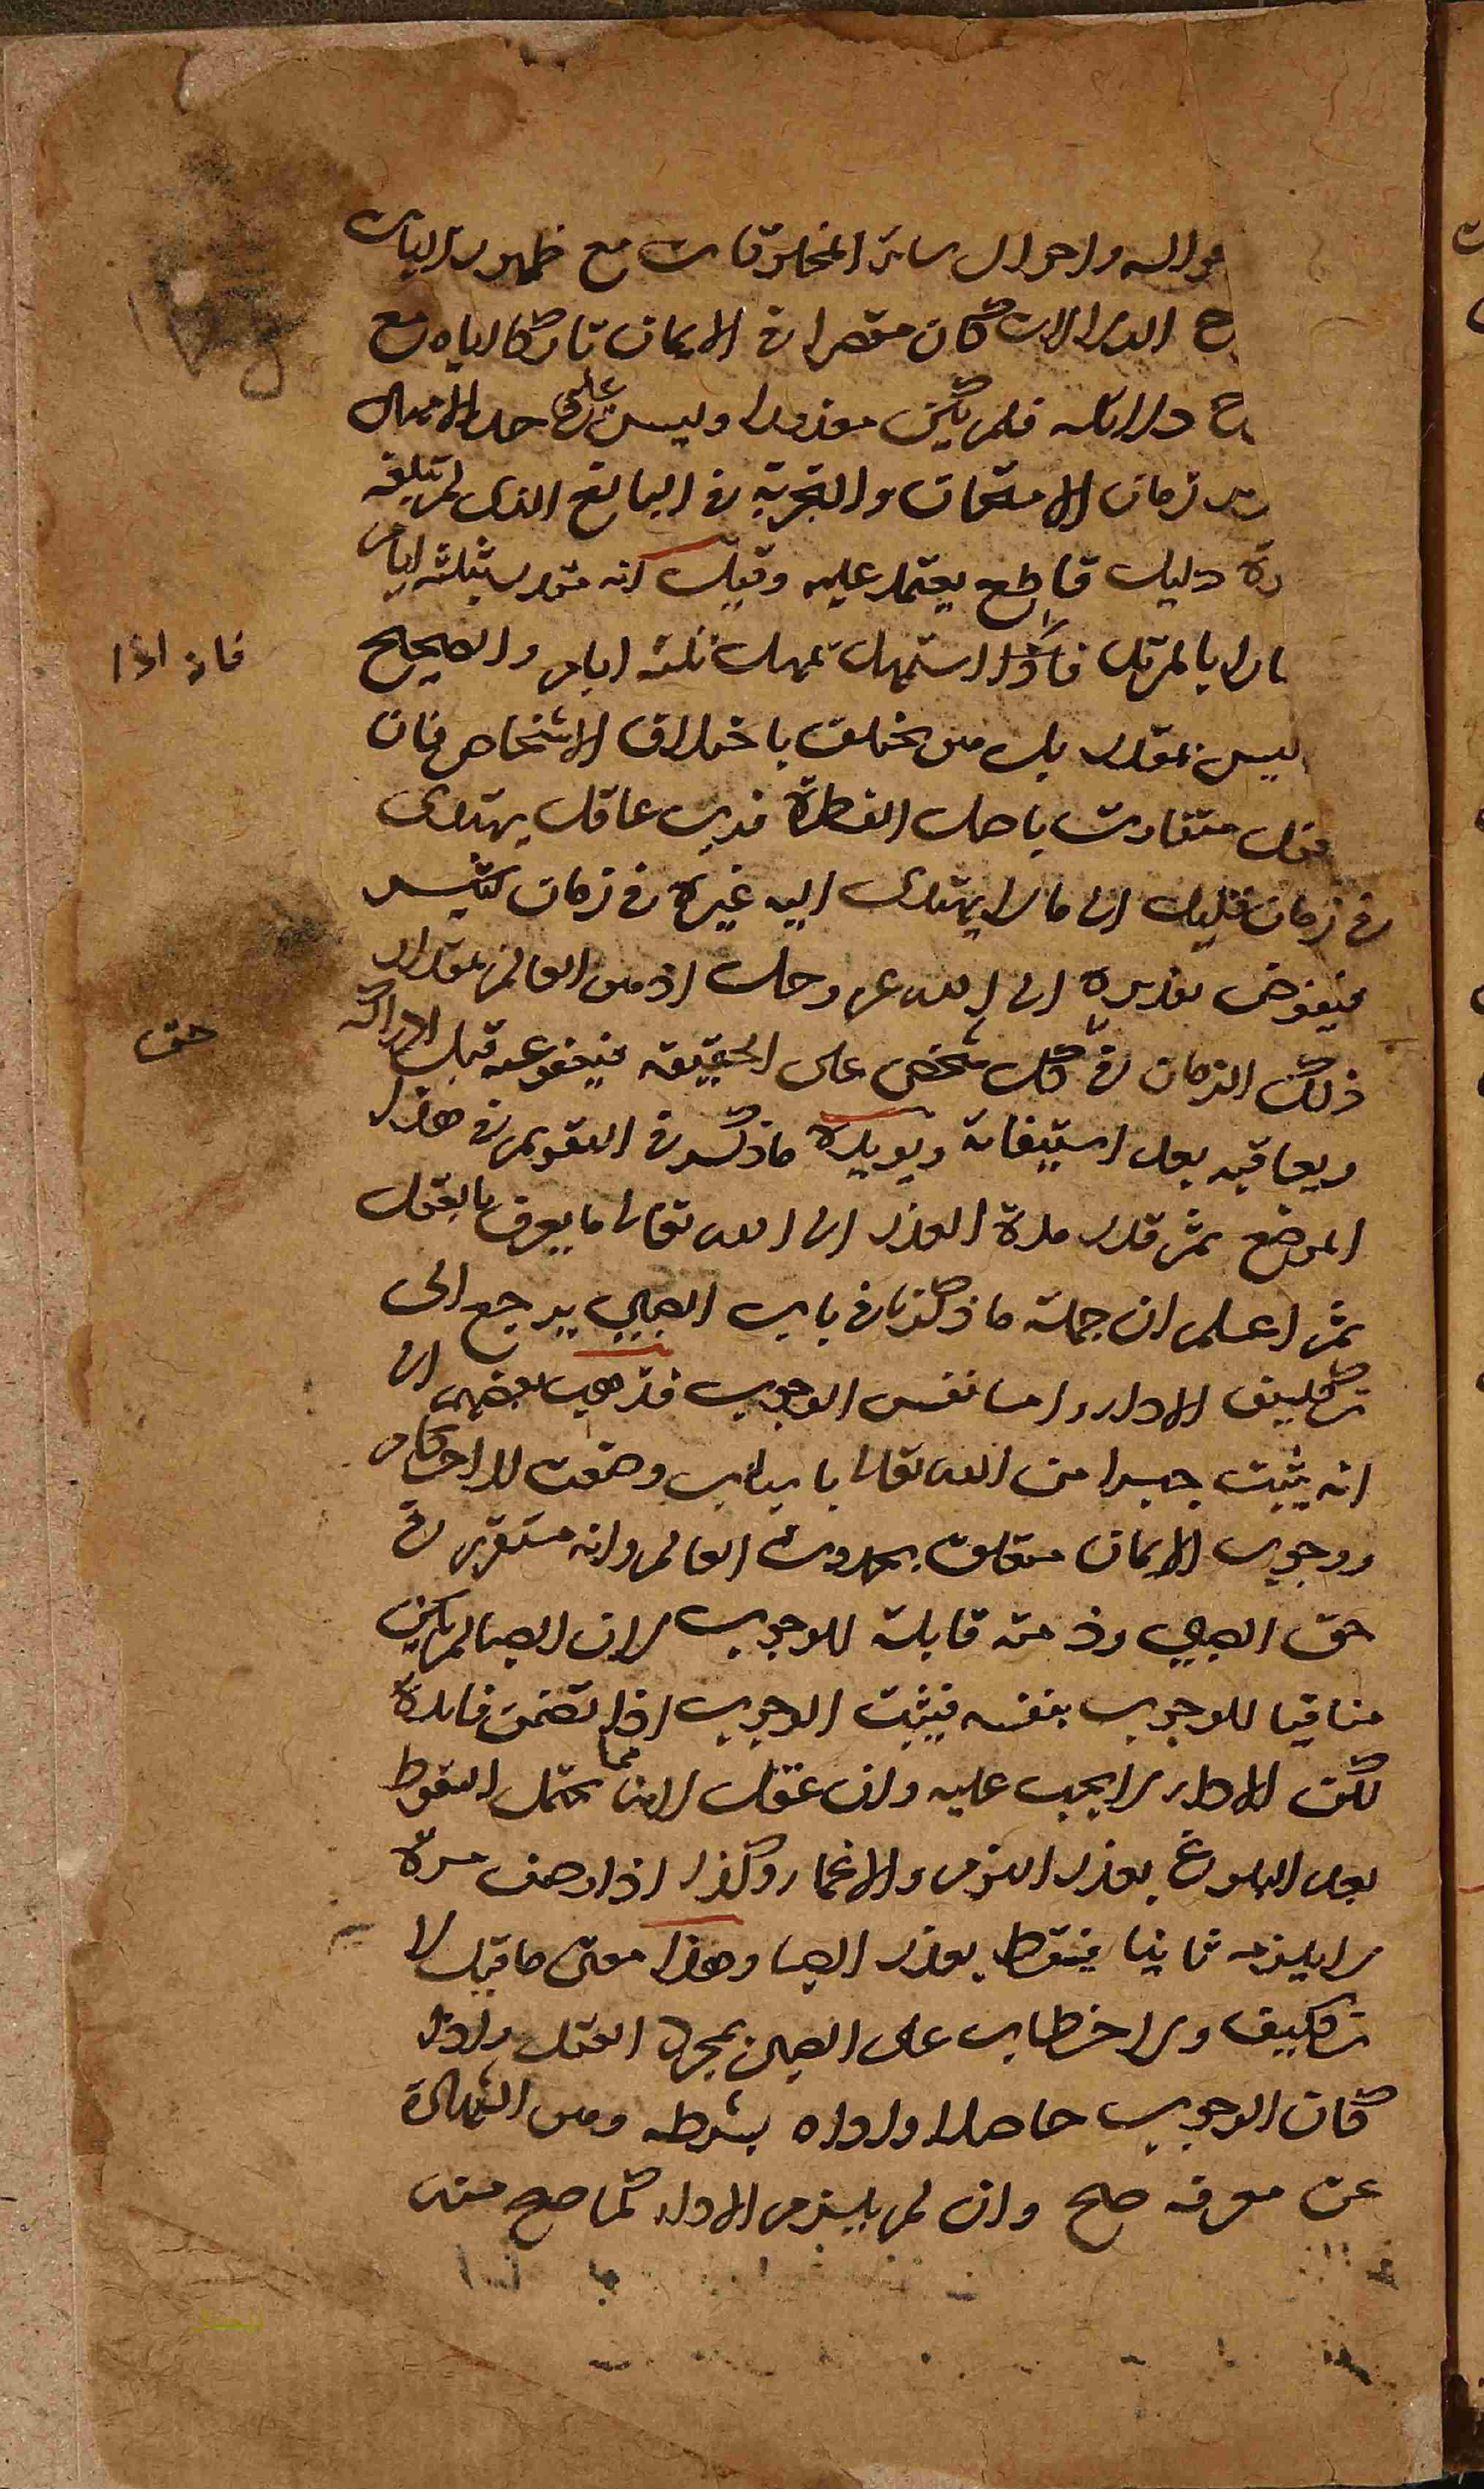 حواله واحوال سائر المخلوقات مع ظهور الآيات
ح الدلالات كان مقصرا في الايمان تاركا اياه مع
ح دلائله فلم يكن معذورا وليس على حد الامهال
زمان الامتحان والتجربة في البالغ الذي لم تبلغه
دليل قاطع يعتمد عليه وقيل انه مقدر بثلثة ايام
بالمرتد فاذا استمهل يمهل ثلثة ايام والصحيح
فان اذا
ليس بمقدر بل هو يختلف باختلاف الاشخاص فان
متفاوت باصل الفطرة فرب عاقل يهتدى
في زمان قليل الى ما لا يهتدى اليه غيره في زمان كثير
فيفوض تقديره الى الله عز وجل اذ هو العالم بمقدار
ذلك الزمان في كل شخص على الحقيقه فيعفو عنه قبل ادراكه
حق
ويعاقبه بعد استيفائه ويويده ما ذكر في التقويم في هذا
الموضع ثم قدر مدة العذر الى الله تعالى ما يعرف بالعقل
ثم اعلم ان جملة ما ذكرنا في باب الصبي يرجع الى
تكليف الاداء واما نفس الوجوب فذهب بعضهم الى
انه يثبت جبرا من الله تعالى باسباب وضعت للاحكام
ووجوب الايمان متعلق بحدوث العالم وانه متقرر في
حق الصبي وذمته قابلة للوجوب لان الصبا لم يكن
منافيا للوجوب بنفسه فيثبت الوجوب اذا تضمن فايدة
لكن الاداء لا يجب عليه وان عقل لانه مما يحتمل السقوط
بعد البلوغ بعذر النوم والاغماء وكذا اذا وصف مرة
لا يلزمه ثانيا فيسقط بعذر الصبا وهذا معنى ما قيل لا
تكليف ولا خطاب على الصبي بمجرد العقل واذا
كان الوجوب حاصلا واداه بشرطه وهو الشهادة
عن معرفه صح وان لم يلزم الاداء كما صح منه